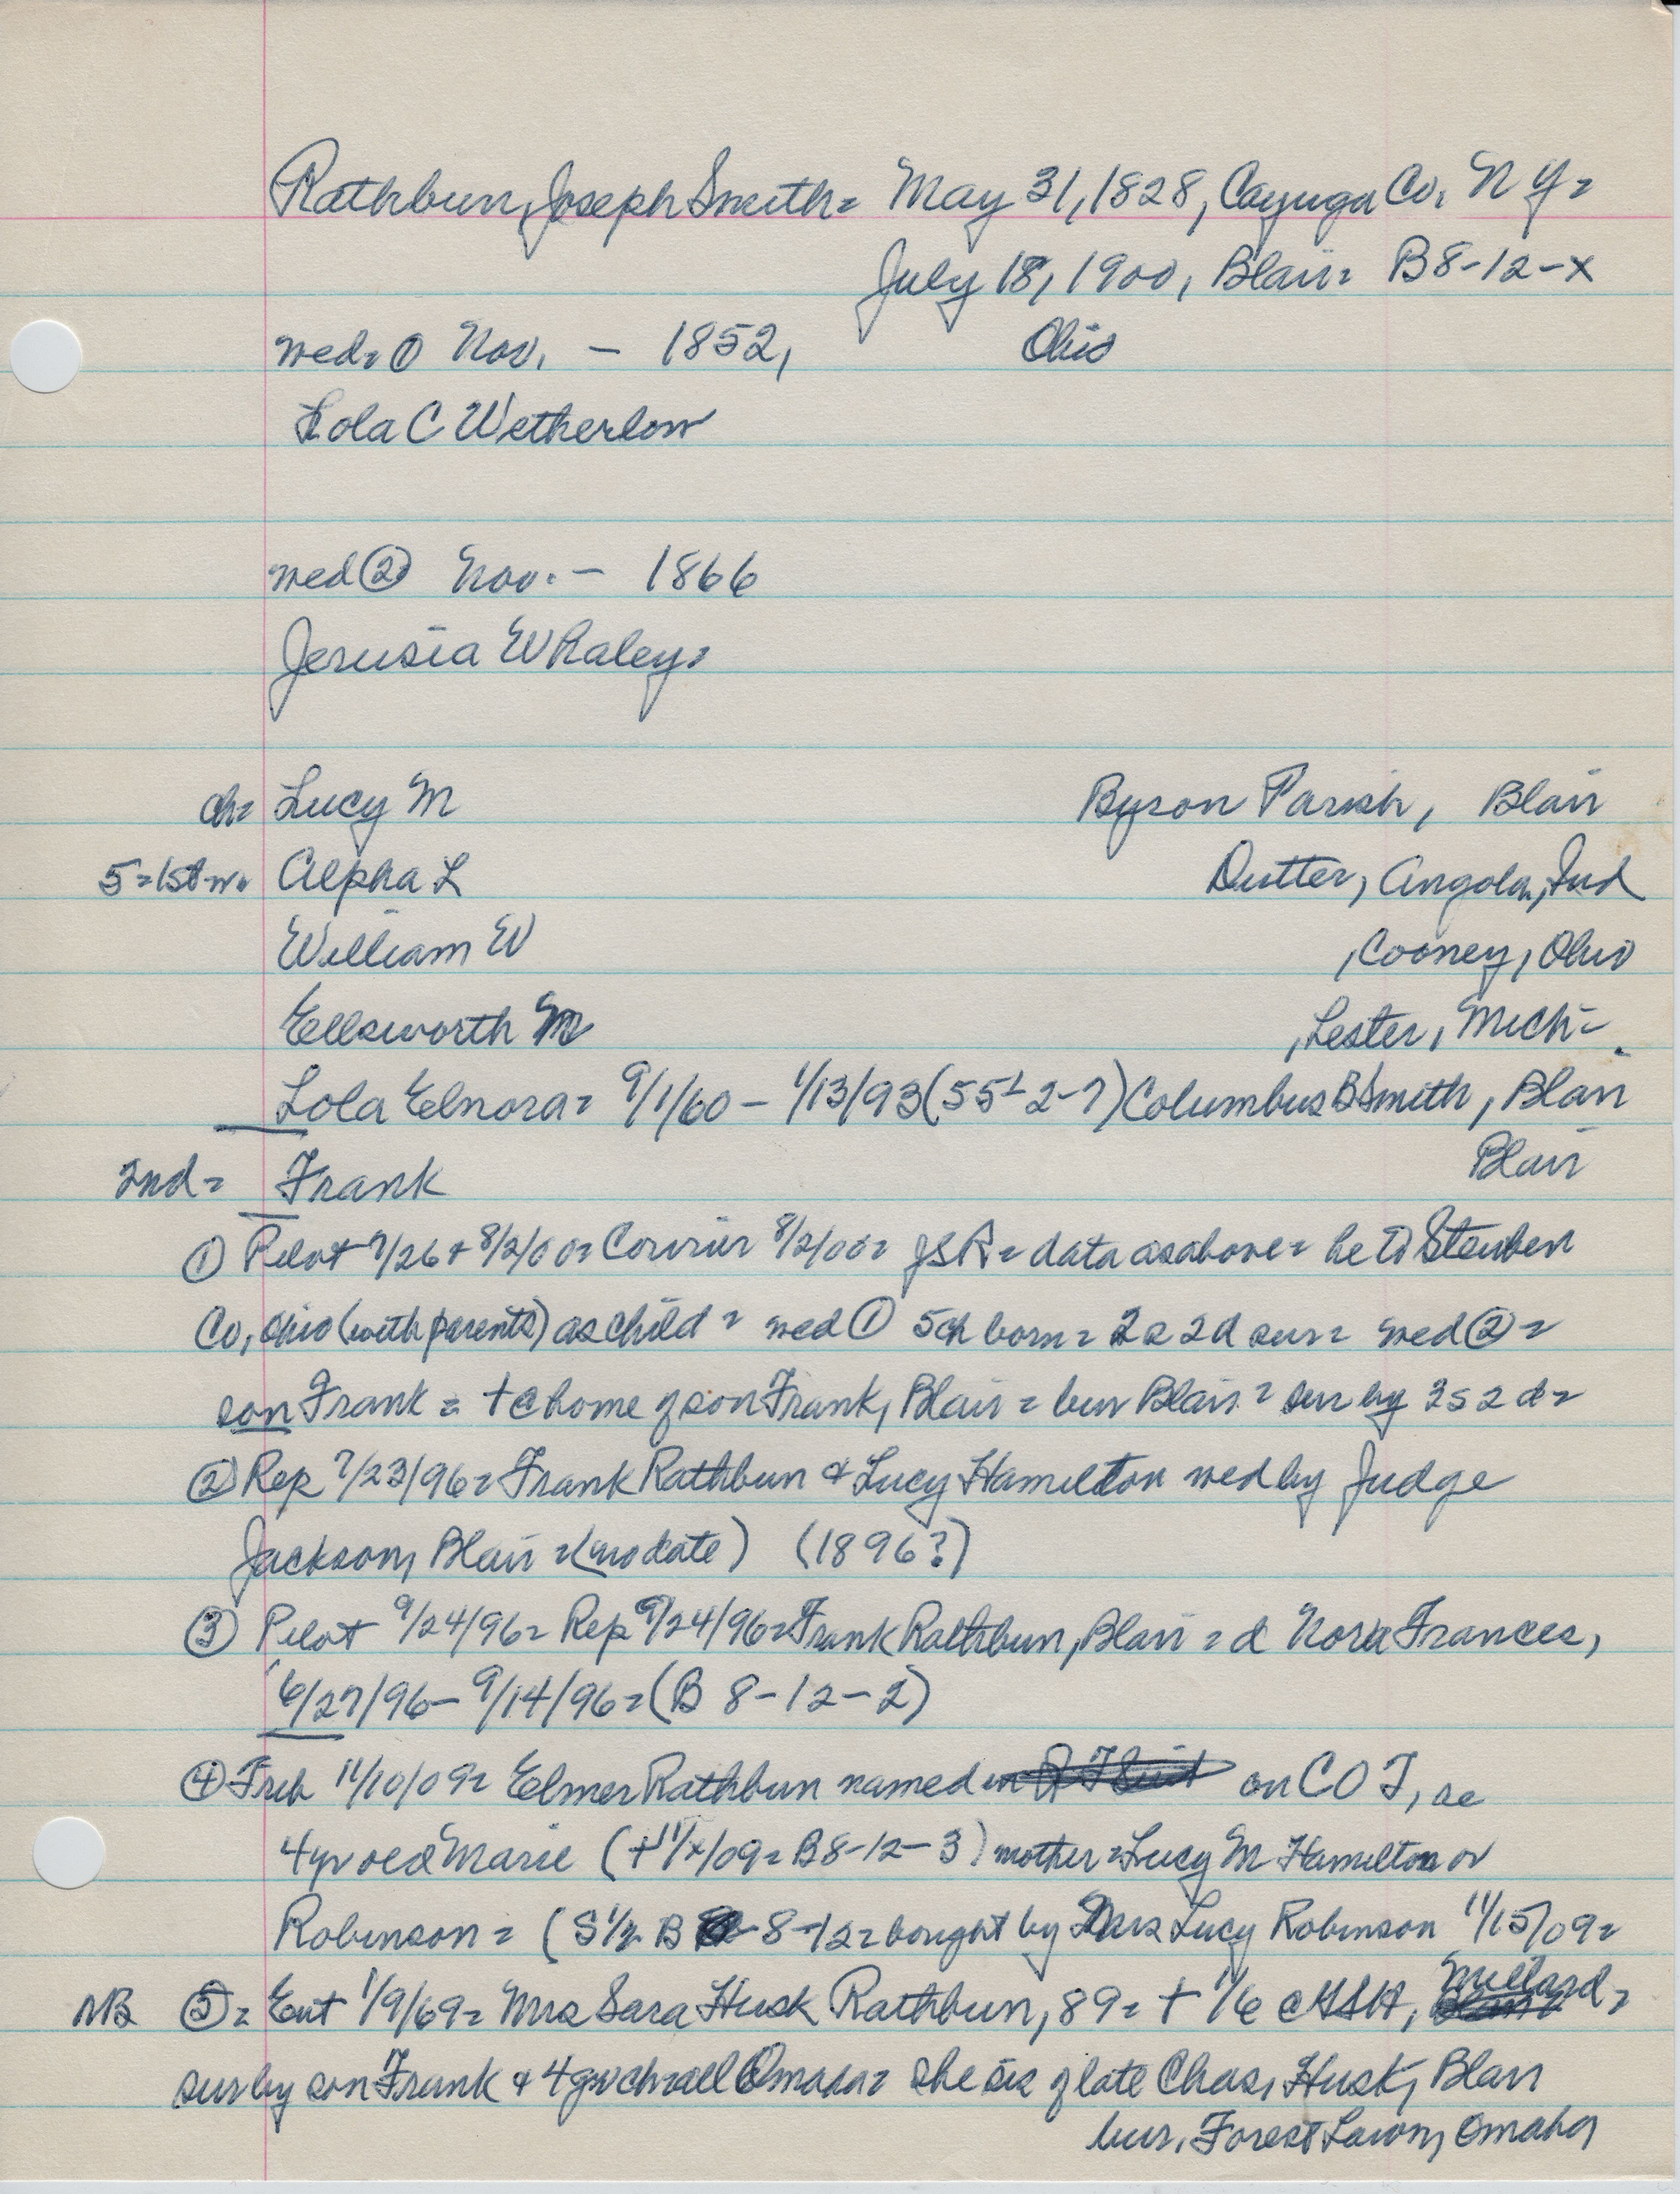 Rathbun, Joseph Smith= May 31, 1828, Cayuga Co, N Y=
July 18, 1900, Blair= B8-12-x
wed= ① Nov. - 1852, Ohio
Lola C Wetherlow
wed ② Nov. - 1866
Jerusia Whaley=
ch= Lucy M Byron Parish, Blair
5=1st w. Alpha L Dutter, Angola, Ind
William W , Cooney, Ohio
Ellsworth M , Lester, Mich=
Lola Elnora= 9/1/60 - 1/13/93 (55 1/2 2-7) Columbus B Smith, Blair
2nd= Frank Blair
① Pilot 7/26 + 8/2/00= Courier 8/2/00= JSR= data as above= he to Steuben
Co, Ohio (with parents) as child= wed ① 5ch born= 2s 2d sur= wed ②=
son Frank= + @ home of son Frank, Blair= bur Blair= sur by 3s 2d=
② Rep 7/23/96= Frank Rathbun & Lucy Hamilton wed by Judge
Jackson, Blair =(no date) (1896?)
③ Pilot 9/24/96= Rep 9/24/96= Frank Rathbun, Blair= d Nora Frances,
6/27/96- 9/14/96= (B 8-12-2)
④ Trib 11/10/09= Elmer Rathbun named on COT, re
4yr old Marie (+11/x/09= B8-12-3) mother= Lucy M Hamilton or
Robinson= (S 1/2 B 8-12= bought by Mrs Lucy Robinson 11/15/09=
NB ⑤= Ent 1/9/69= Mrs Sara Husk Rathbun, 89= + 1/6 @ Millard=
sur by son Frank & 4 grch= all Omaha= she sis of late Chas, Husk, Blair
bur. Forest Lawn, Omaha